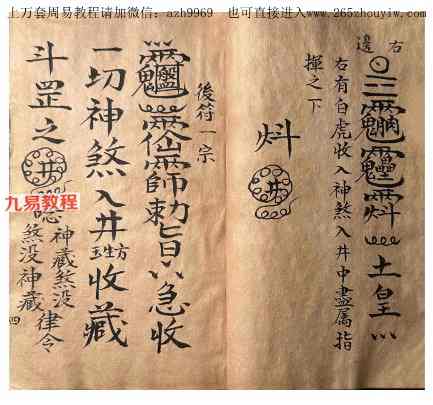 上万套周易教程请加微信：azh9969 也可直接进入www.265zhouyiw.com
右邊
土皇
右有白虎收入神煞入井中盡属指
揮之下
井
後符一宗
師勅旨急收
一切神煞入井生方收藏
斗罡之井
神藏煞没
煞没神藏
律令
四
九易教程